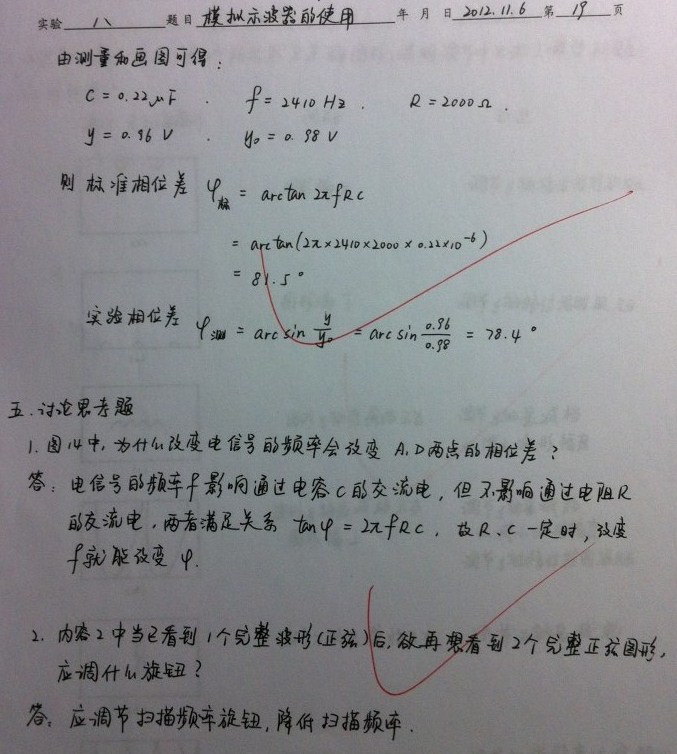 实验 八 题目 模拟示波器的使用 年 月 日 2012.11.6 第 19 页
由测量和画图可得:
C = 0.22μF . f = 2410 Hz . R = 2000Ω .
y = 0.96 V . y₀ = 0.98 V
则 标准相位差 φ标 = arctan 2πfRC
= arctan(2π×2410×2000×0.22×10⁻⁶)
= 81.5°
实验相位差 φ测 = arcsin y/y₀ = arcsin 0.96/0.98 = 78.4°
五.讨论思考题
1. 图14中,为什么改变电信号的频率会改变 A,D两点的相位差?
答: 电信号的频率f影响通过电容C的交流电,但不影响通过电阻R
的交流电,两者满足关系 tanφ = 2πfRC , 故R、C一定时,改变
f就能改变φ.
2. 内容2中当已看到1个完整波形(正弦)后,欲再想看到2个完整正弦图形,
应调什么旋钮?
答: 应调节扫描频率旋钮,降低扫描频率.